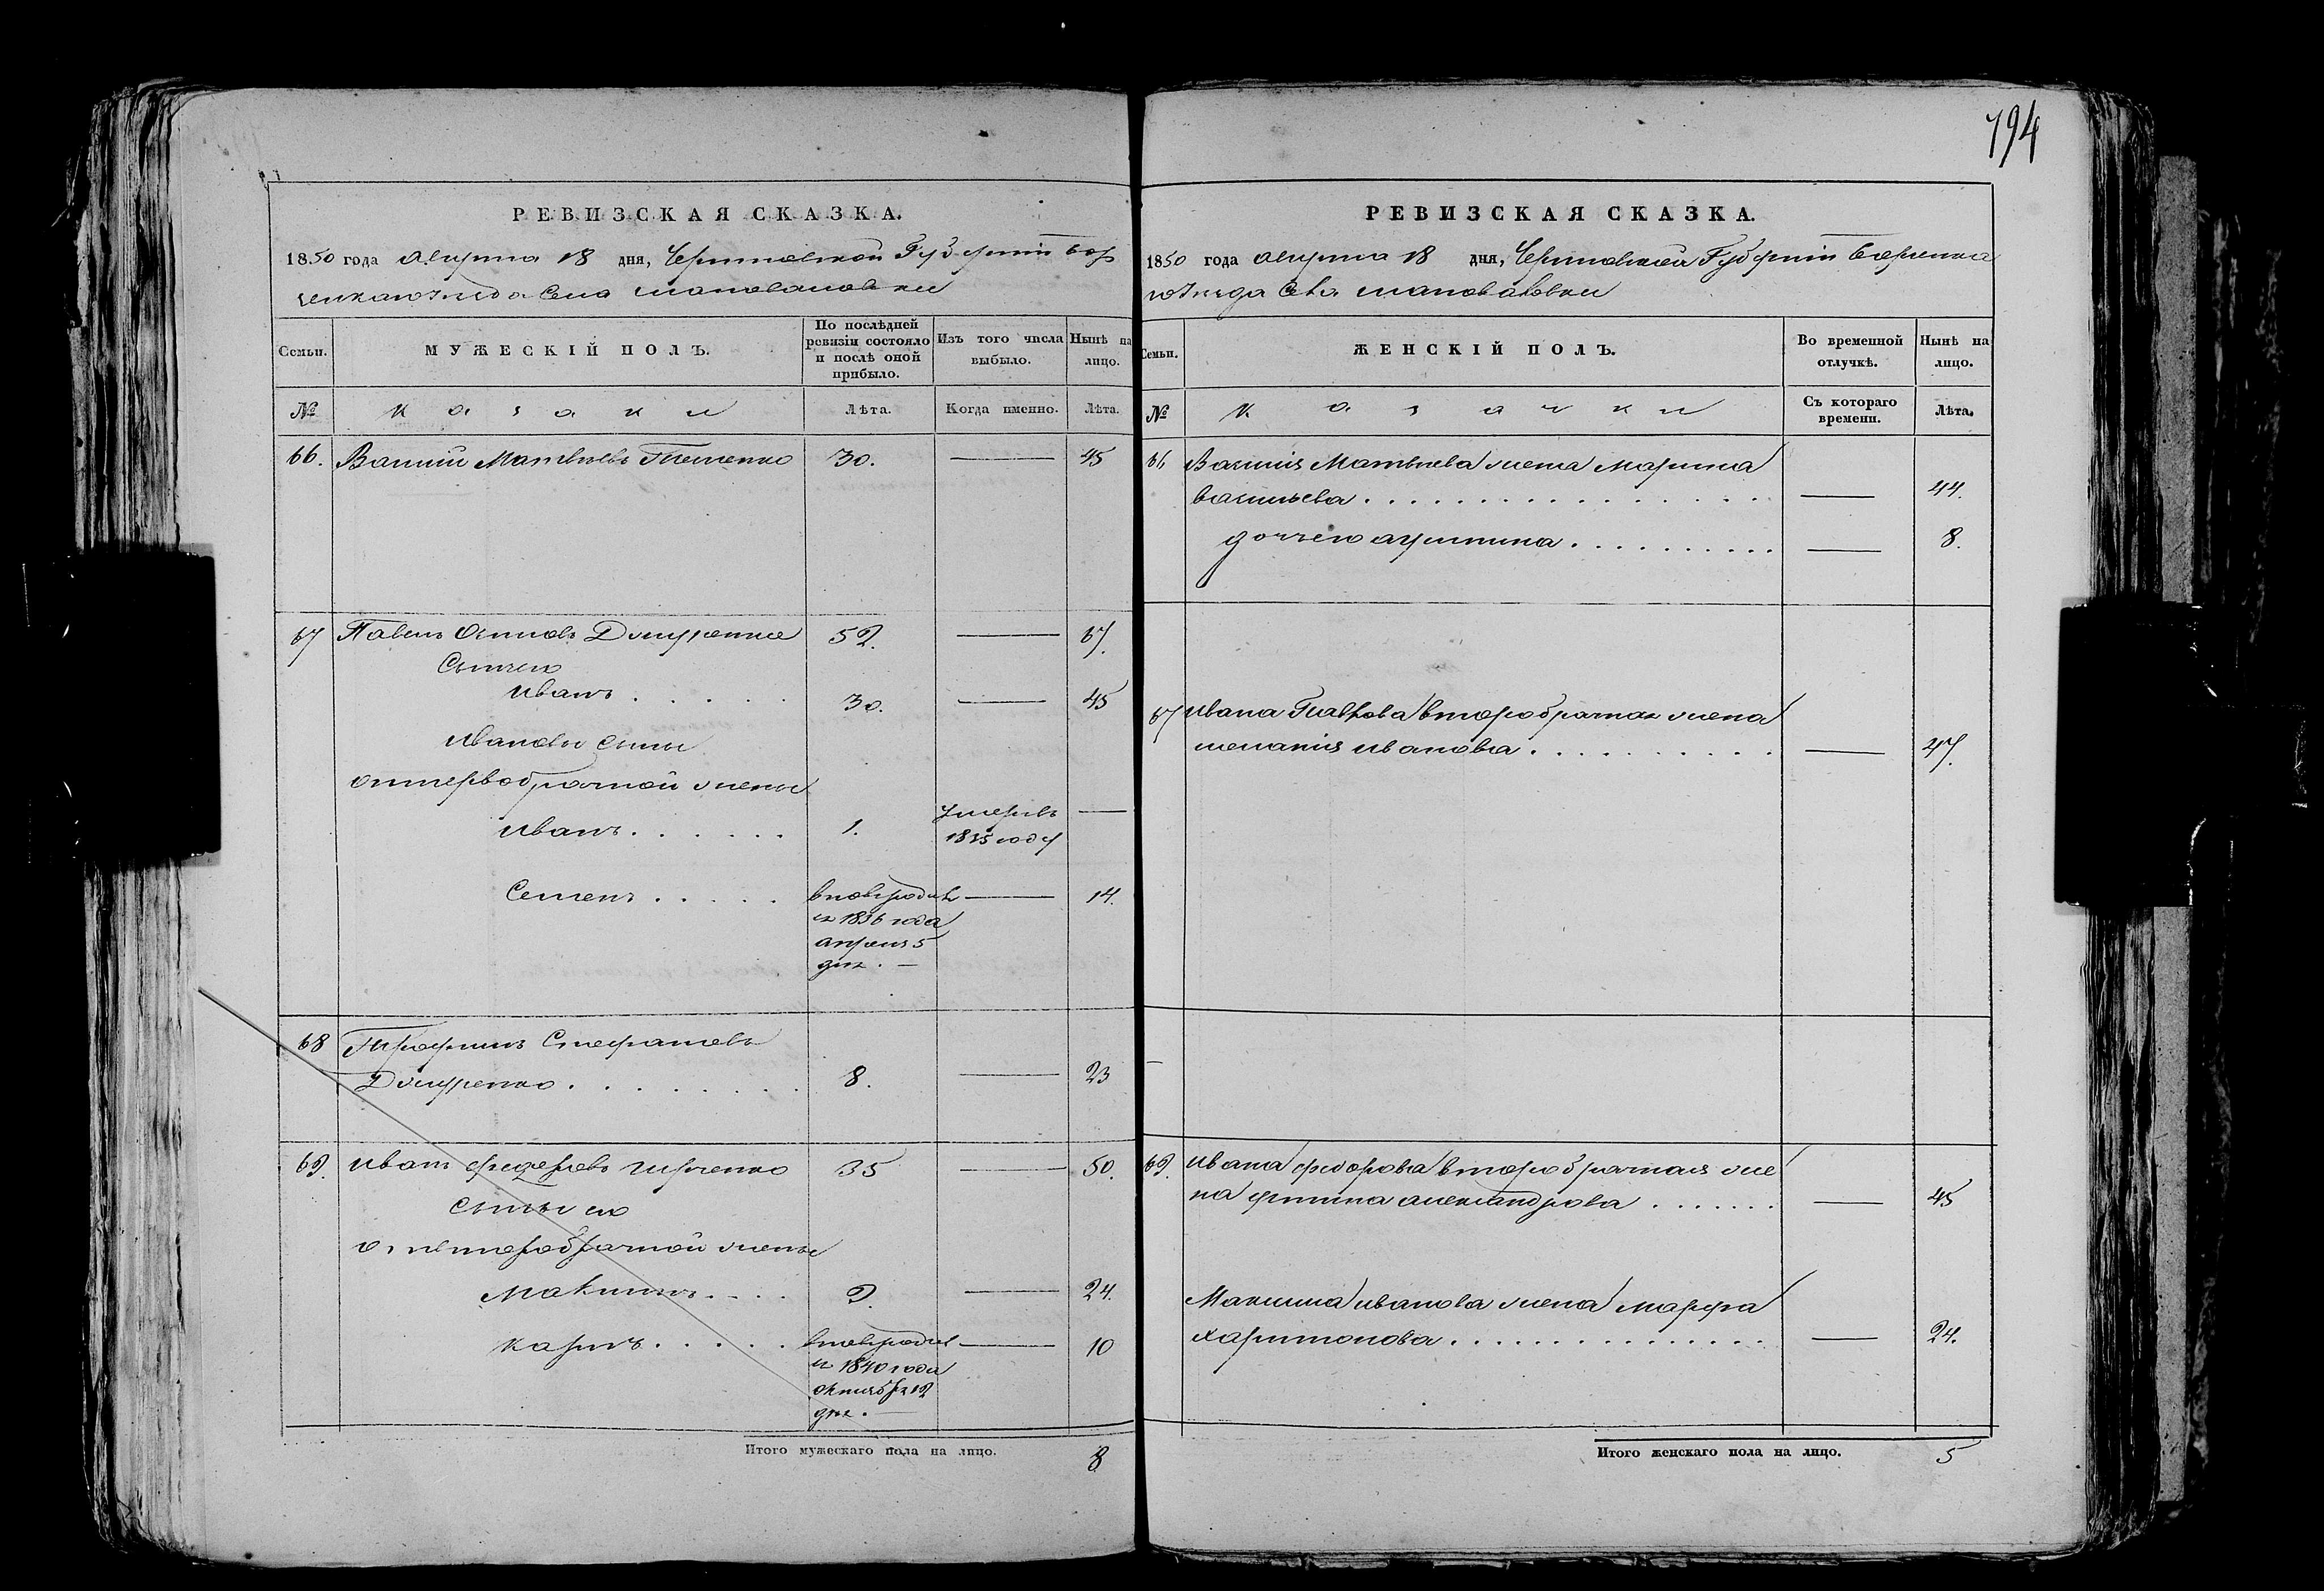 194
РЕВИЗСКАЯ СКАЗКА.
1850 года августа 18 дня, Черниговской Губернiи Бор
зенскаго уезда Села
Семьи. МУЖЕСКIЙ ПОЛЪ. По послѣдней ревизiи состояло и послѣ оной прибыло. Изъ того числа выбыло. Нынѣ на лицо.
№ Казаки Лѣта. Когда именно. Лѣта.
66. Василiй Матвѣевъ 30. — 45
67 Павелъ Осиповъ 52. — 67.
Сынъ его
Иванъ . . . . . 30. — 45
Ивановы сыны
отъ первобрачной жены
Иванъ . . . . . . 1. умеръ въ 1835 году —
Семенъ . . . . . вновьродив — 14.
ся 1836 года
апреля 5
дня. —
68 Трофимъ Стефановъ
. . . . . . . . 8. — 23
69. Иванъ Федоровъ 35 — 50.
Сыны его
отъ второбрачной жены
Максимъ . . . . 9. — 24.
Карпъ . . . . . вновьродил — 10
ся 1840 года
октября 12
дня. —
Итого мужескаго пола на лицо. 8
РЕВИЗСКАЯ СКАЗКА.
1850 года августа 18 дня, Черниговской Губернiи Борзенска
го уезда Села
Семьи. ЖЕНСКIЙ ПОЛЪ. Во временной отлучкѣ. Нынѣ на лицо.
№ Казачки Съ котораго времени. Лѣта.
66 Василiя Матвѣева жена Марина
Васильева . . . . . . . . . . . . . . . — 44.
дочь его . . . . . . . . . . — 8.
67 Ивана Павлова второбрачная жена
Меланiя Иванова . . . . . . . . . . — 47.
—
69. Ивана Федорова второбрачная же
на Александрова . . . . . . . — 45
Максима Иванова жена Марфа
Харитонова . . . . . . . . . . . . . . — 24.
Итого женскаго пола на лицо. 5